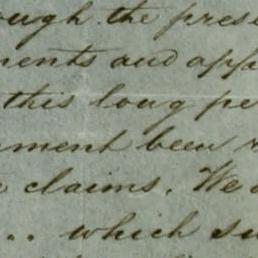 ough the prese
ments and appa
this long pe
rnment been r
claims. We a
.. which su